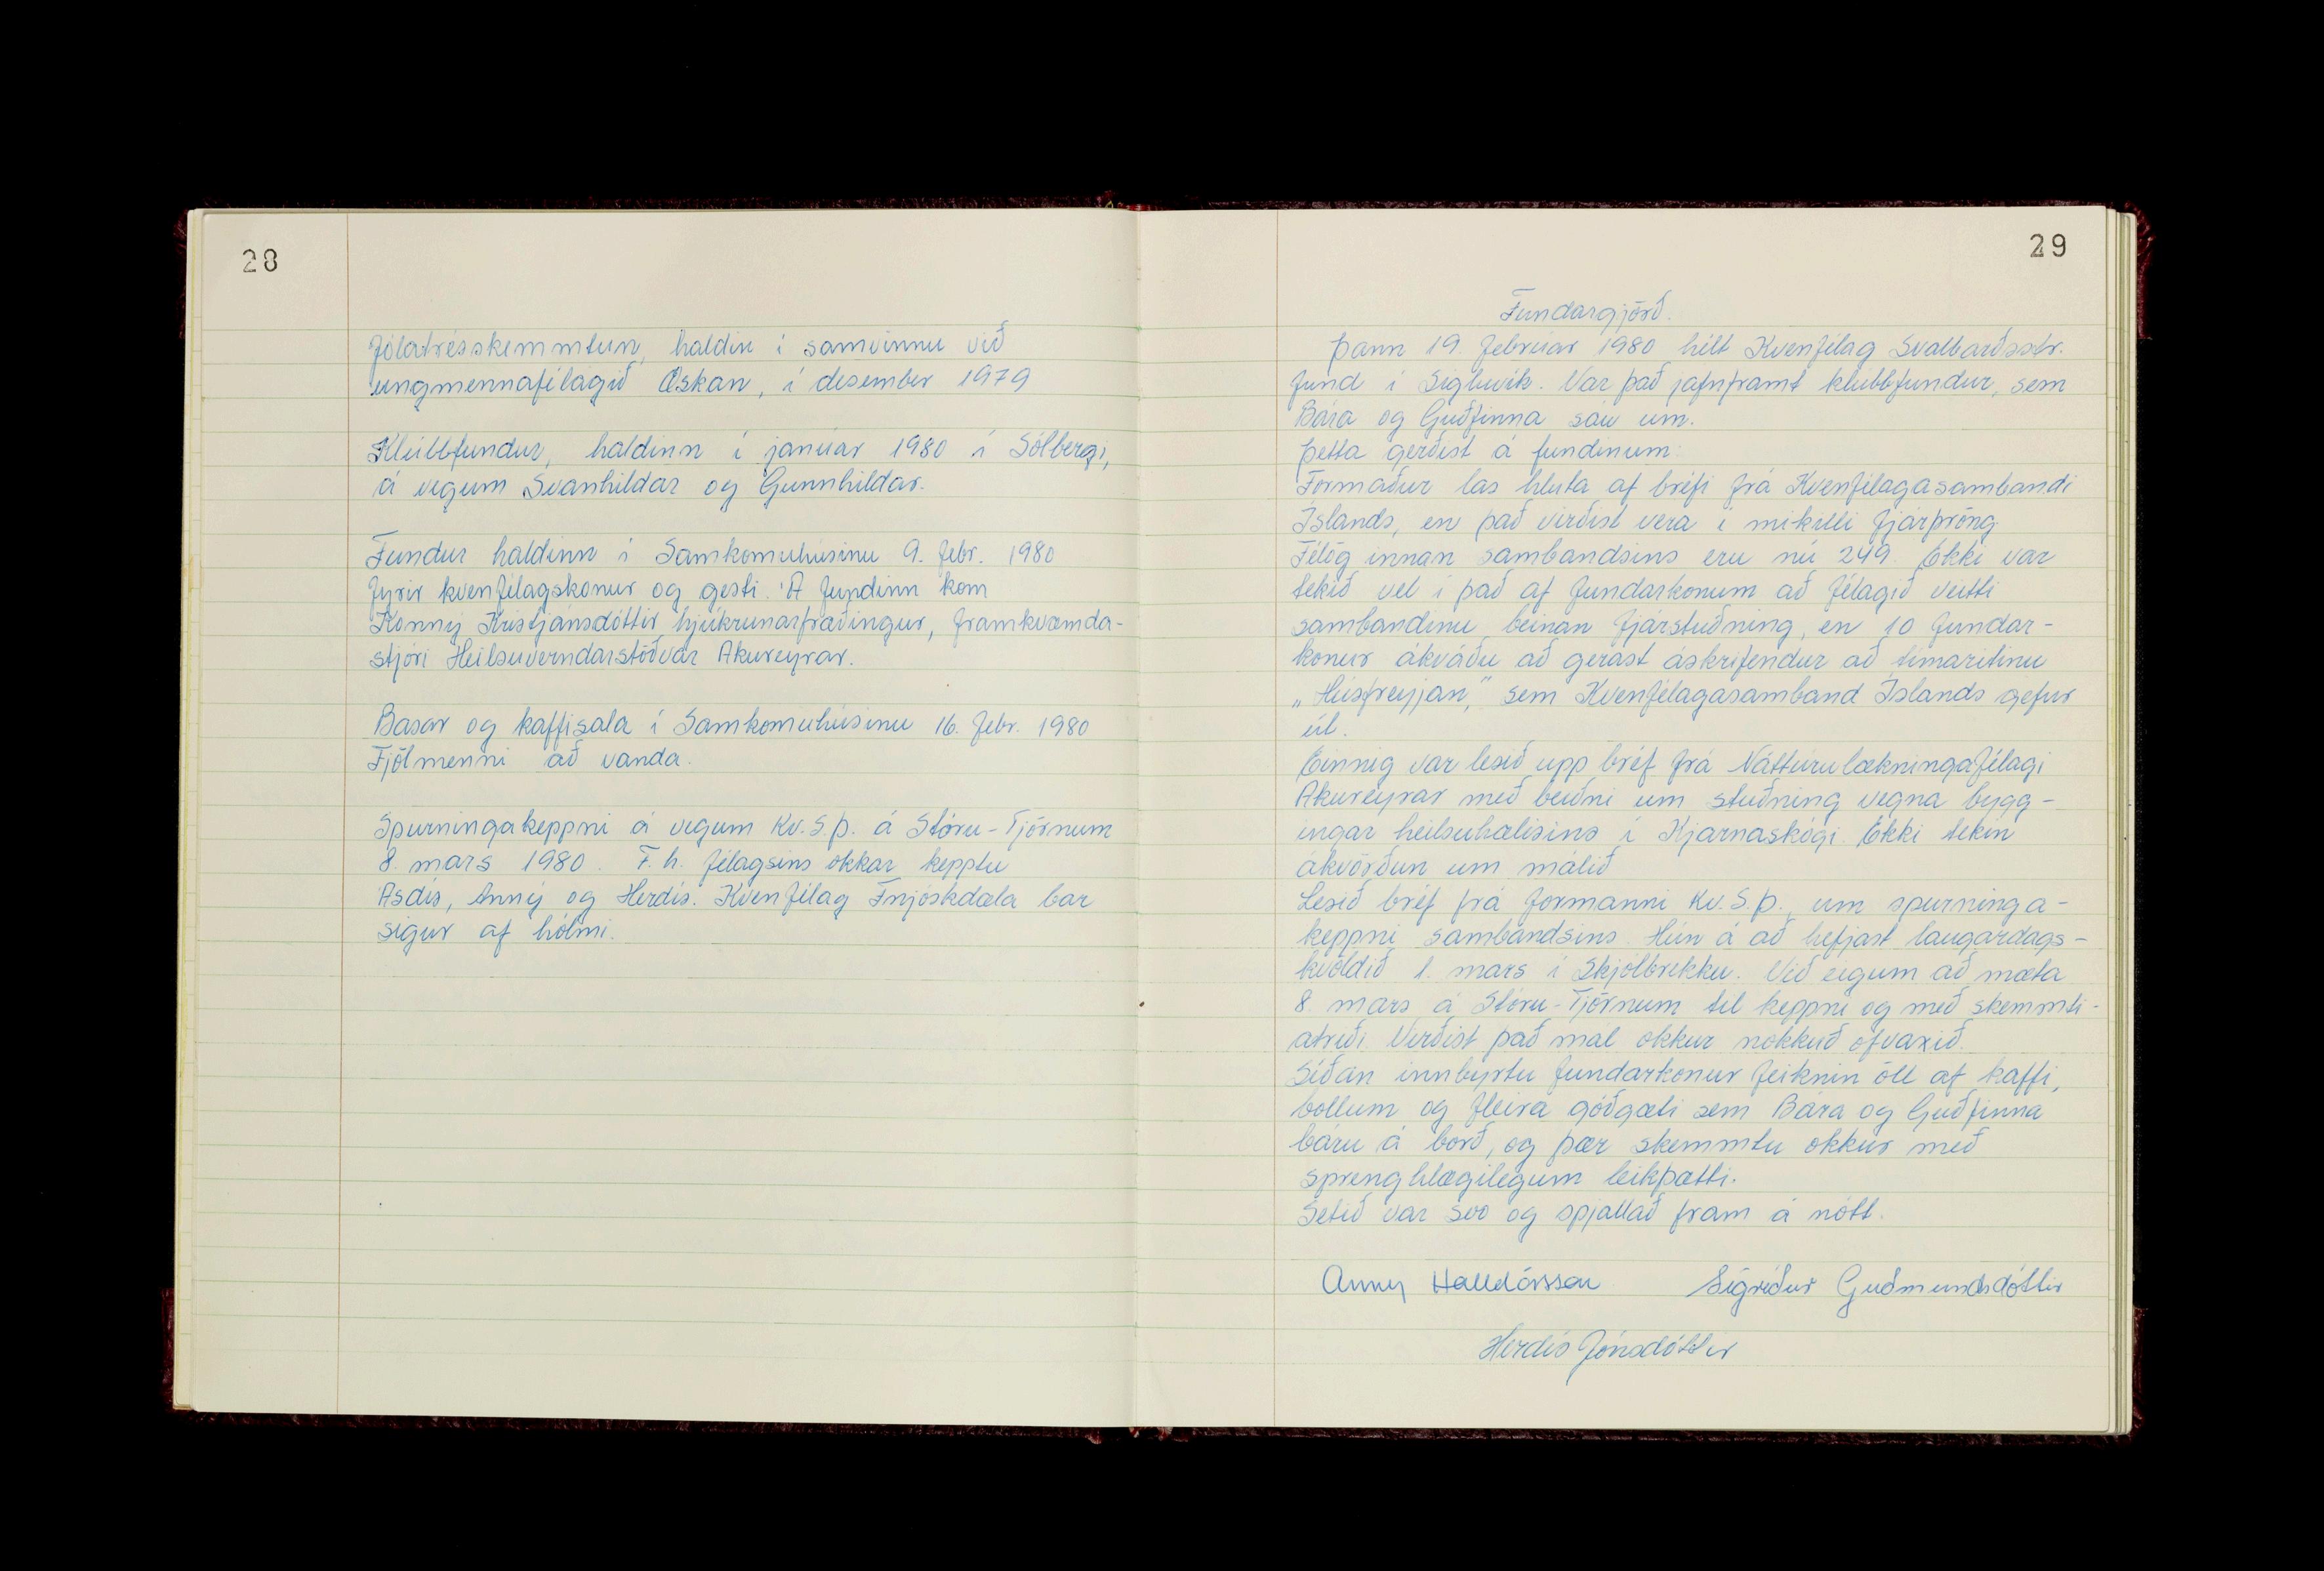 28
Jólatrésskemmtun, haldin í samvinnu við
ungmennafélagið Æskan, í desember 1979
Klúbbfundur, haldinn í janúar 1980 í Sólbergi,
á vegum Svanhildar og Gunnhildar.
Fundur haldinn í Samkomuhúsinu 9. febr. 1980
fyrir kvenfélagskonur og gesti. Á fundinn kom
Konný Kristjánsdóttir hjúkrunarfræðingur, framkvæmda-
stjóri Heilsuverndarstöðvar Akureyrar.
Basar og kaffisala í Samkomuhúsinu 16. febr. 1980
Fjölmenni að vanda.
Spurningakeppni á vegum Kv.S.Þ. á Stóru-Tjörnum
8. mars 1980. F.h. félagsins okkar kepptu
Ásdís, Anný og Herdís. Kvenfélag Fnjóskdæla bar
sigur af hólmi.
29
Fundargjörð.
Þann 19. febrúar 1980 hélt Kvenfélag Svalbarðsstr.
fund í Sigluvík. Var það jafnframt klúbbfundur, sem
Bára og Guðfinna sáu um.
Þetta gerðist á fundinum:
Formaður las hluta af bréfi frá Kvenfélagasambandi
Íslands, en það virðist vera í mikilli fjárþröng.
Félög innan sambandsins eru nú 249. Ekki var
tekið vel í það af fundarkonum að félagið veitti
sambandinu beinan fjárstuðning, en 10 fundar-
konur ákváðu að gerast áskrifendur að tímaritinu
„Húsfreyjan," sem Kvenfélagasamband Íslands gefur
út.
Einnig var lesið upp bréf frá Náttúrulækningafélagi
Akureyrar með beiðni um stuðning vegna bygg-
ingar heilsuhælisins í Kjarnaskógi. Ekki tekin
ákvörðun um málið
Lesið bréf frá formanni Kv.S.Þ., um spurninga-
keppni sambandsins. Hún á að hefjast laugardags-
kvöldið 1. mars í Skjólbrekku. Við eigum að mæta
8. mars á Stóru-Tjörnum til keppni og með skemmti-
atriði. Virðist það mál okkur nokkuð ofvaxið.
Síðan innbyrtu fundarkonur feiknin öll af kaffi,
bollum og fleira góðgæti sem Bára og Guðfinna
báru á borð, og þær skemmtu okkur með
sprenghlægilegum leikþætti.
Setið var svo og spjallað fram á nótt.
Anny Halldórsson Sigríður Guðmundsdóttir
Herdís Jónsdóttir